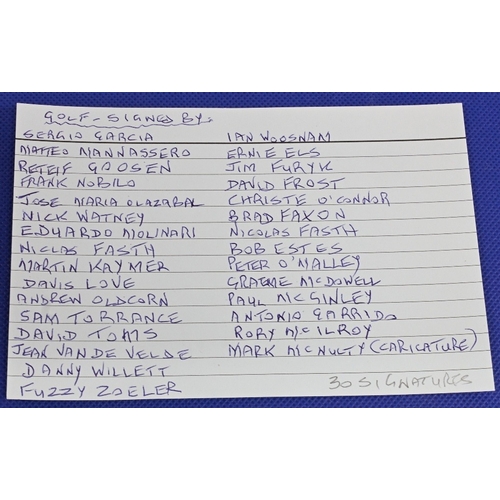 GOLF - SIGNED BY:
SERGIO GARCIA
MATTEO MANNASSERO
RETEIF GOOSEN
FRANK NOBILO
JOSE MARIA OLAZABAL
NICK WATNEY
EDUARDO MOLINARI
NICLAS FASTH
MARTIN KAYMER
DAVIS LOVE
ANDREW OLDCORN
SAM TORRANCE
DAVID TOMS
JEAN VAN DE VELDE
DANNY WILLETT
FUZZY ZOELER
IAN WOOSNAM
ERNIE ELS
JIM FURYK
DAVID FROST
CHRISTE O'CONNOR
BRAD FAXON
NICOLAS FASTH
BOB ESTES
PETER O'MALLEY
GRAEME MCDOWELL
PAUL MCGINLEY
ANTONIO GARRIDO
RORY MCILROY
MARK MCNULTY (CARICATURE)
30 SIGNATURES